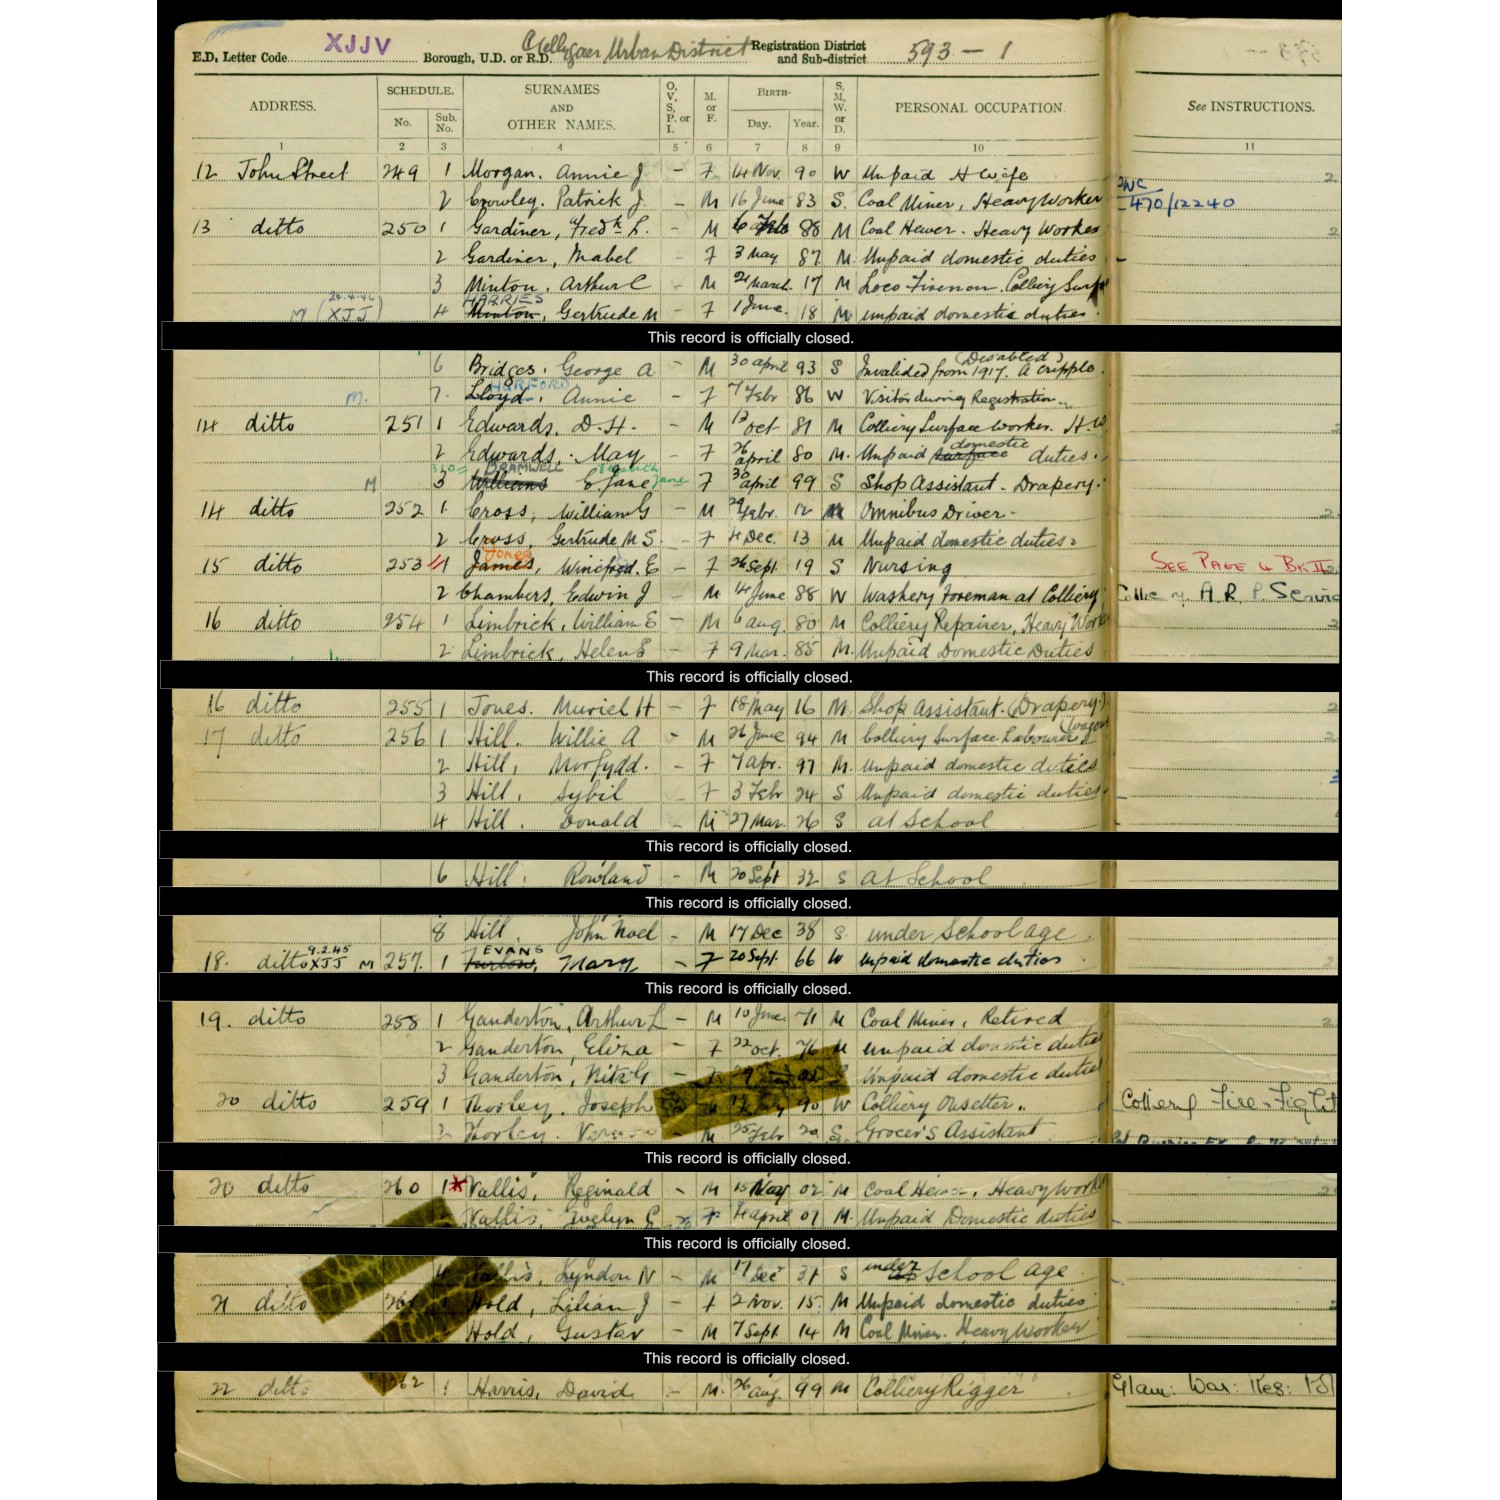 XJJV
E.D. Letter Code Borough, U.D. or R.D. Gelligaer Urban District Registration District and Sub-district 593 - 1
ADDRESS. SCHEDULE. No. Sub. No. SURNAMES AND OTHER NAMES. O, V, S, P. or I. M. or F. BIRTH- Day. Year. S, M, W. or D. PERSONAL OCCUPATION. See INSTRUCTIONS.
1 2 3 4 5 6 7 8 9 10 11
12 John Street 249 1 Morgan. Annie J - F 14 Nov. 90 W Unpaid H Wife
2 Crowley. Patrick J. M 16 June 83 S. Coal Miner, Heavy Worker 470/12240
13 ditto 250 1 Gardiner, Fredk L. - M 88 M Coal Hewer. Heavy Worker
2 Gardiner, Mabel - F 3 May 87 M. Unpaid domestic duties
3 Minton, Arthur C - M 21 March. 17 M Loco Fireman. Colliery Surface
24.4.46 XJJ M HARRIES
4 Minton, Gertrude M - F 1 June. 18 M unpaid domestic duties.
This record is officially closed.
(Disabled)
6 Bridges. George A - M 30 april 93 S Invalided from 1917. A cripple.
HURFORD
M. 7. Lloyd. Annie - F 7 Febr 86 W Visitor during Registration.
14 ditto 251 1 Edwards, D.H. - M 13 oct 81 M Colliery Surface Worker. H.W
domestic
2 Edwards. May - F 26 april 80 M. Unpaid surface duties.
BRAMWELL Elizabeth Jane
M 3 Williams E. Jane F 30 april 99 S Shop Assistant - Drapery.
14 ditto 252 1. Cross, William G - M 29 Febr. 12 M Omnibus Driver -
2 Cross, Gertrude M S. - F 4 Dec. 13 M Unpaid domestic duties.
Jones
15 ditto 253 1 James, Winifred. E - F 26 Sept. 19 S Nursing SEE PAGE 4 BK II
2 Chambers, Edwin J - M 14 June 88 W Washery Foreman at Colliery Colliery A.R.P. Service
16 ditto 254 1 Limbrick, William E - M 6 aug. 80 M Colliery Repairer, Heavy Worker
2 Limbrick, Helen E - F 9 Mar. 85 M. Unpaid Domestic Duties
This record is officially closed.
16 ditto 255 1 Jones. Muriel H - F 18 May 16 M Shop Assistant. (Drapery.)
17 ditto 256 1 Hill. Willie A - M 26 June 94 M Colliery Surface Labourer
2 Hill, Morfydd. - F 7 Apr. 97 M. Unpaid domestic duties
3 Hill, Sybil - F 3 Febr 24 S Unpaid domestic duties
4 Hill. Donald - M 27 Mar. 26 S at School
This record is officially closed.
6 Hill, Rowland - M 20 Sept 32 S at School
This record is officially closed.
8 Hill John Noel - M 17 Dec 38 S. under School age
9.2.45 XJJ M EVANS
18. ditto 257. 1 Mary - F 20 Sept. 66 W unpaid domestic duties
This record is officially closed.
19. ditto 258 1 Ganderton, Arthur L - M 10 June 71 M Coal Miner, Retired
2 Ganderton, Eliza - F 22 oct. 76 M unpaid domestic duties
3 Ganderton, Unpaid domestic duties
20 ditto 259 1 Thorley, Joseph M 90 W Colliery Onsetter. Colliery Fire-Fight
2 Thorley. M 25 Febr S. Grocer's Assistant
This record is officially closed.
20 ditto 260 1 Vallis, Reginald - M 15 May 02 M Coal Hewer, Heavy Worker
Vallis, Evelyn G F 4 april 07 M. Unpaid Domestic duties
This record is officially closed.
under
Vallis, Lyndon N - M 17 Dec 37 S at School age
21 ditto 261 Hold, Lilian J - F 2 Nov. 15 M Unpaid domestic duties
Hold, Gustav - M 7 Sept. 14 M Coal Miner. Heavy Worker
This record is officially closed.
22 ditto 262 1 Harris, David - M. 26 aug. 99 M Colliery Rigger Glam: War: Res: Pol